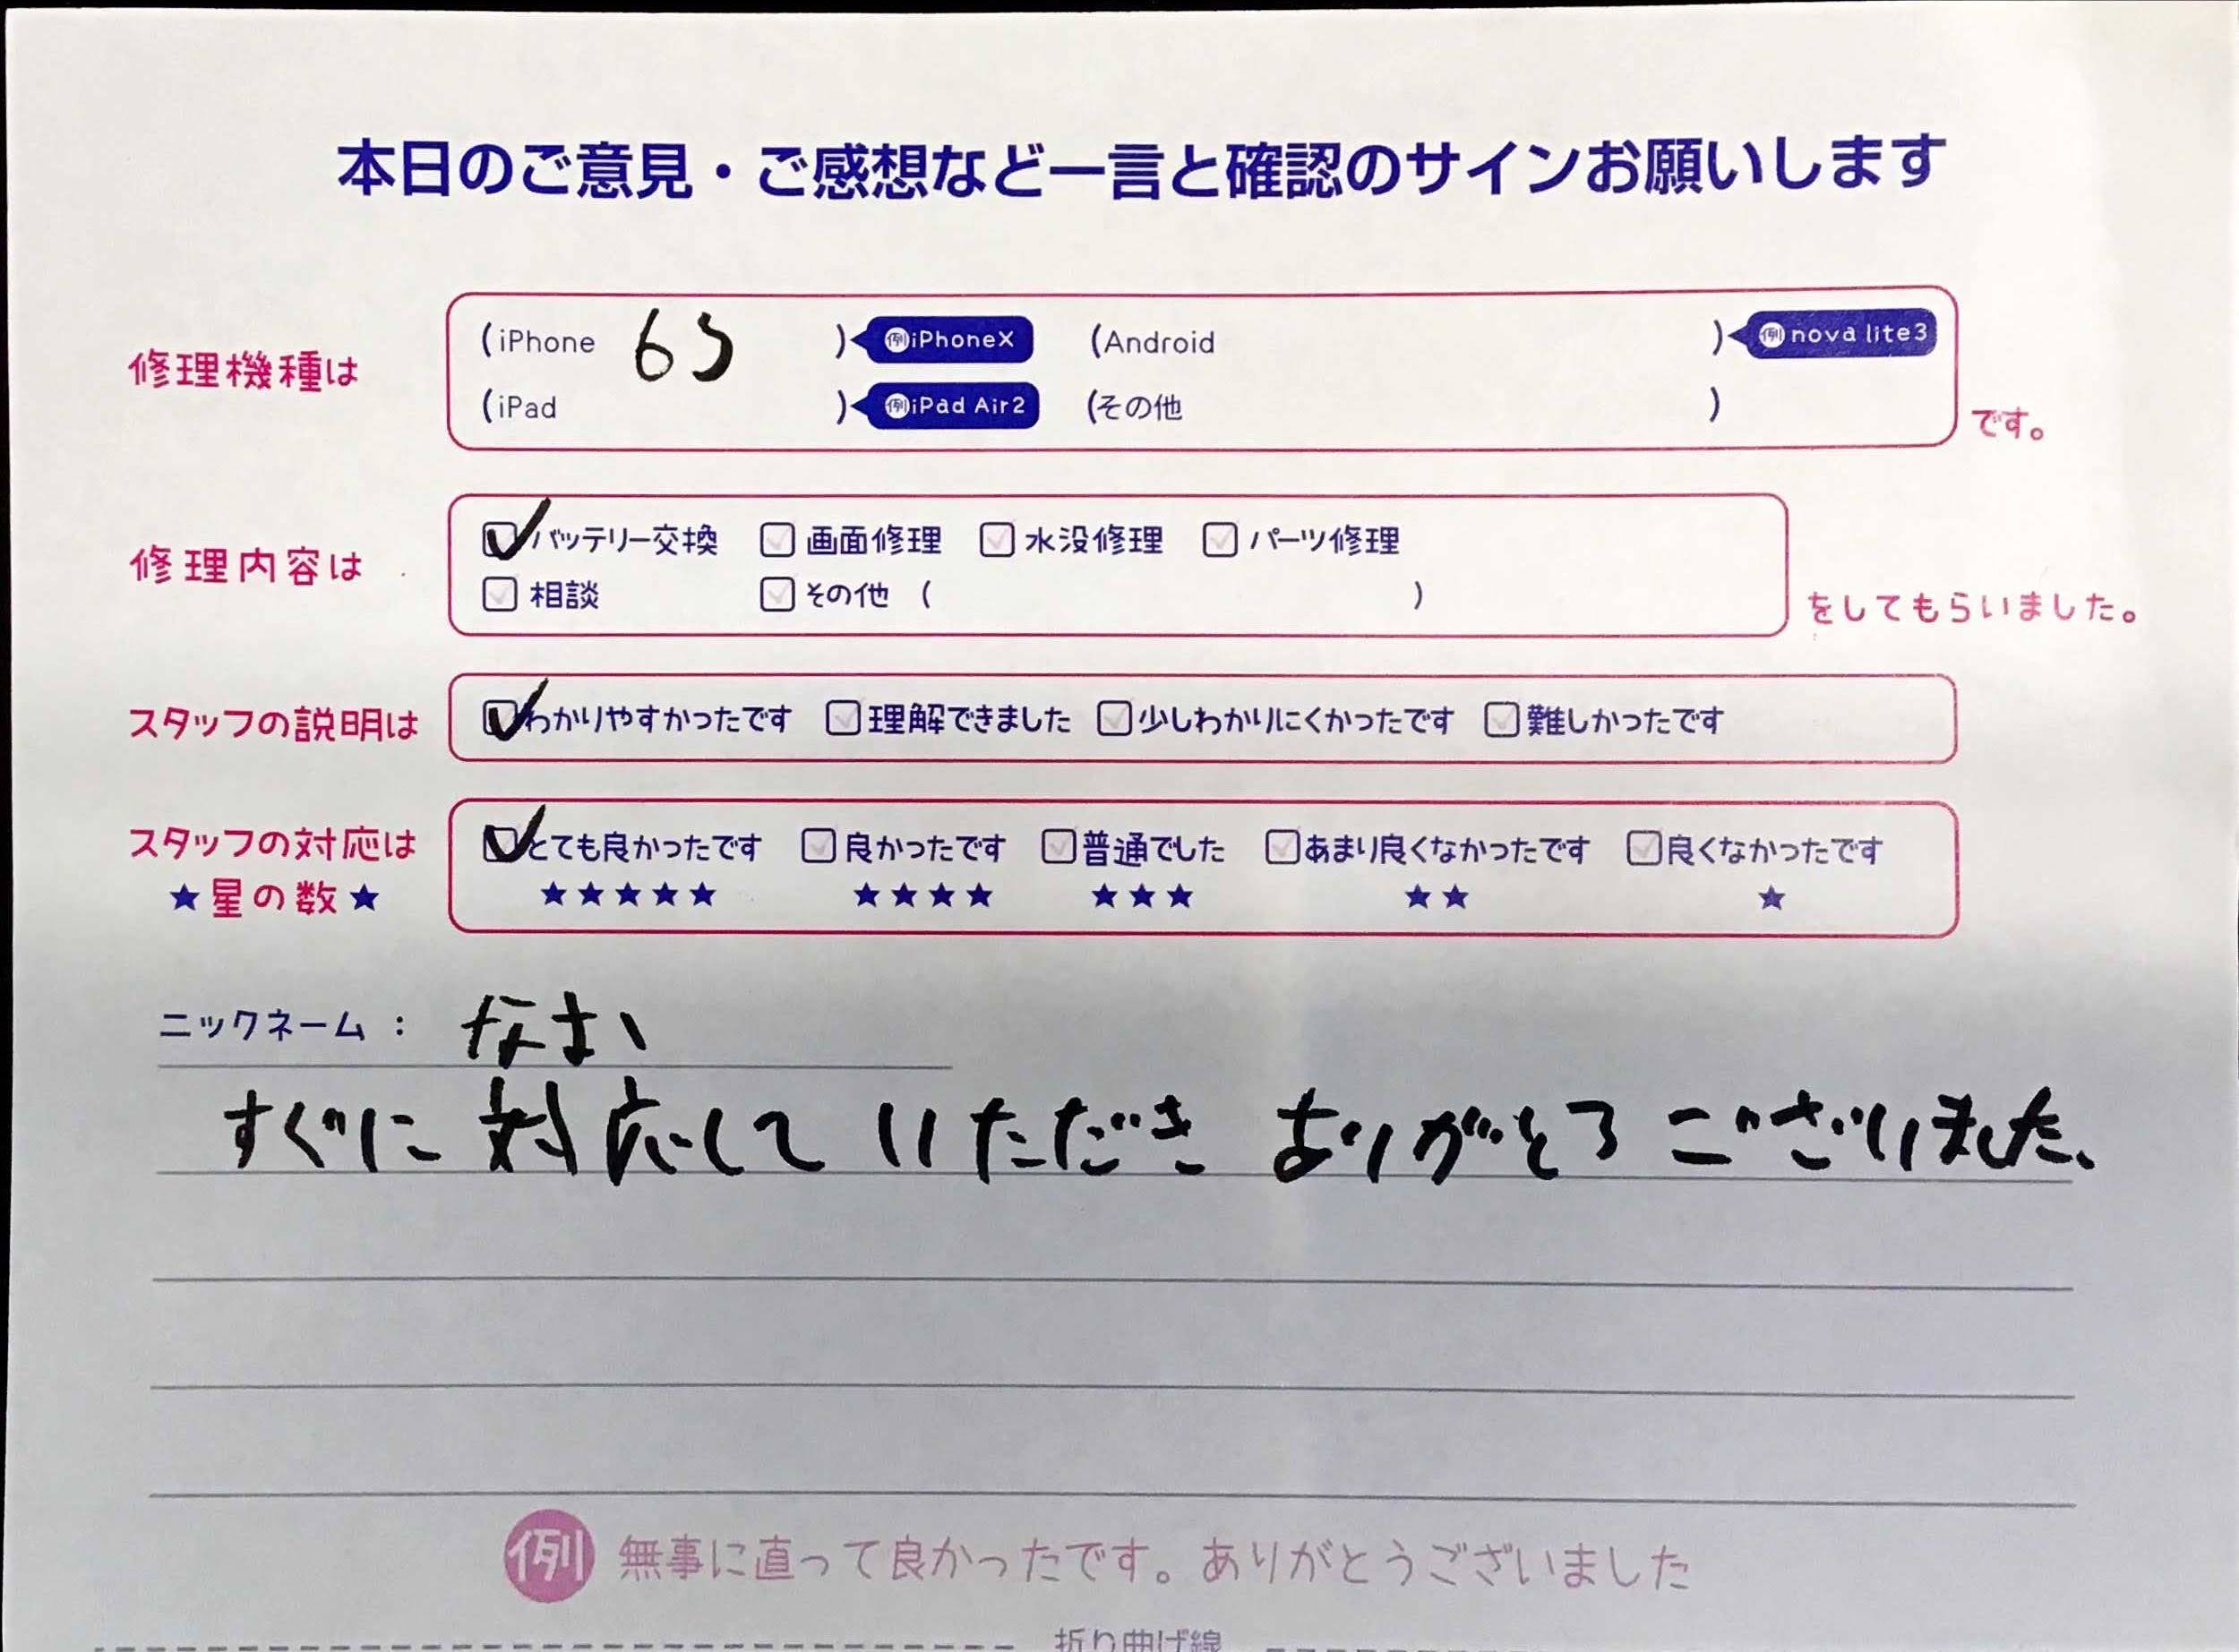 本日のご意見・ご感想など一言と確認のサインお願いします
修理機種は
(iPhone 6s ) 例iPhoneX (Android ) 例nova lite3
(iPad ) 例iPad Air2 (その他 )
です。
修理内容は
バッテリー交換 画面修理 水没修理 パーツ修理
相談 その他 ( )
をしてもらいました。
スタッフの説明は
わかりやすかったです 理解できました 少しわかりにくかったです 難しかったです
スタッフの対応は
★星の数★
とても良かったです 良かったです 普通でした あまり良くなかったです 良くなかったです
★★★★★ ★★★★ ★★★ ★★ ★
ニックネーム：
すぐに対応していただきありがとうございました、
例 無事に直って良かったです。ありがとうございました
折り曲げ線